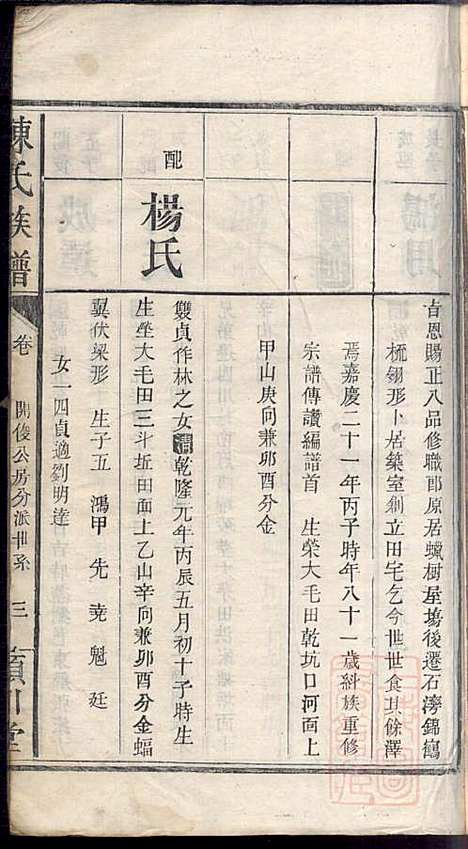 吉恩賜正八品修職郎原居蠟樹屋塲後遷石澇錦鷄
梳翎形卜居築室創立田宅乞今世世食其餘澤
焉嘉慶二十一年丙子時年八十一歲斜族重修
宗譜傳讚編譜首 生塋大毛田乾坑口河面上
甲山庚向兼卯酉分金
配
楊氏
雙貞作林之女清乾隆元年丙辰五月初十子時生
生坐大毛田三斗坵田面上乙山辛向兼卯酉分金蝠
翼伏梁形 生子五 鴻甲 先 堯 魁 廷
女一四貞適劉明達
陳氏族譜
卷
開俊公房分派世系
三
潁川堂